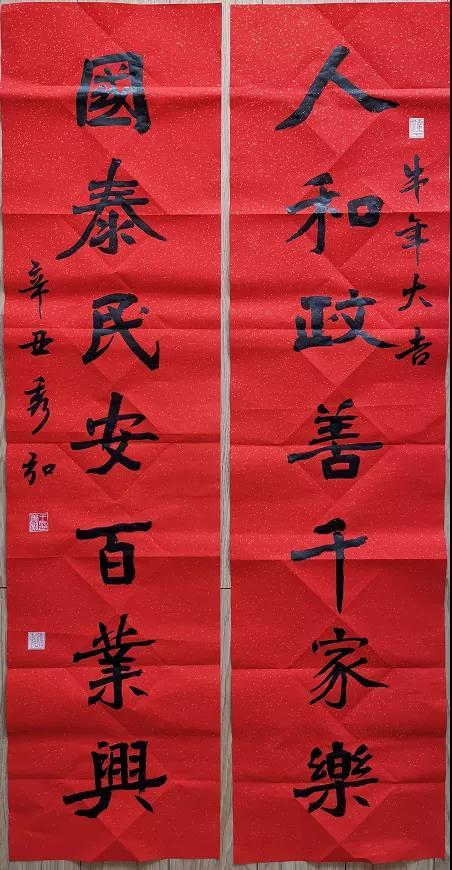 牛年大吉
人和政善千家樂
國泰民安百業興
辛丑秀弘